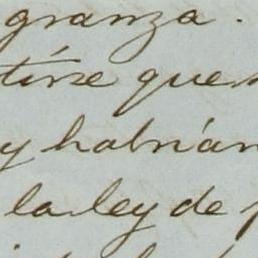 granza.
tirse que
y habrían
la ley de